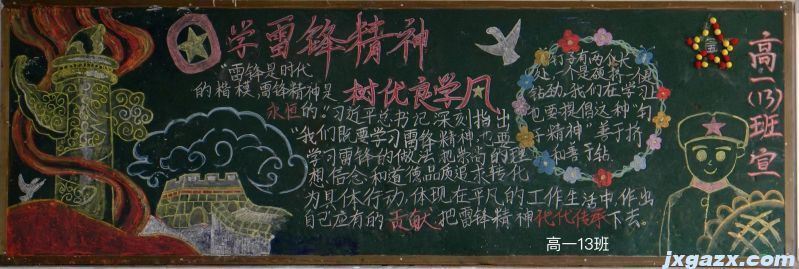 学雷锋精神
树优良学风
"雷锋是时代
的楷模,雷锋精神是
永恒的."习近平总书记深刻指出
"我们既要学习雷锋精神,也要
学习雷锋的做法,把崇高的理
想信念和道德品质追求转化
为具体行动,体现在平凡的工作生活中,作出
自己应有的贡献,把雷锋精神代代传承下去。
钉子有两个长
处:一个是硬挤,一个是
钻劲,我们在学习上
也要提倡这种"钉
子精神"善于挤
和善于钻.
高一(13)班宣
高一13班
jxgazx.com